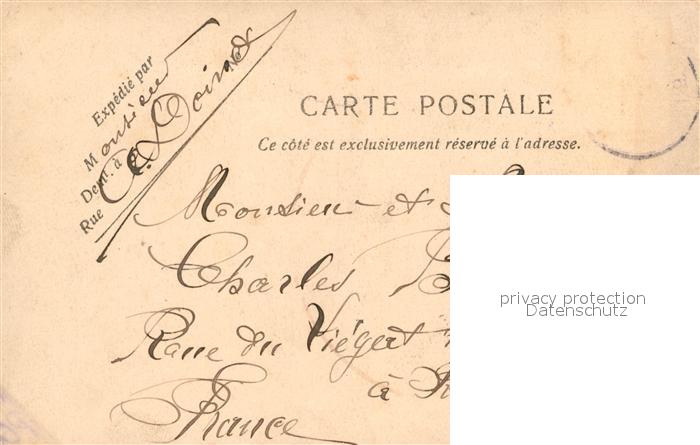 Expédié par
Monsieur
Demt. à
Rue
CARTE POSTALE
Ce côté est exclusivement réservé à l'adresse.
Monsieur et
Charles B
Rue du
à R
France
privacy protection
Datenschutz